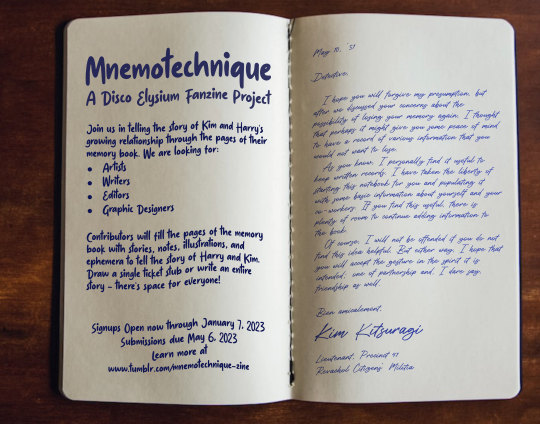 Mnemotechnique
A Disco Elysium Fanzine Project
Join us in telling the story of Kim and Harry's
growing relationship through the pages of their
memory book. We are looking for:
• Artists
• Writers
• Editors
• Graphic Designers
Contributors will fill the pages of the memory
book with stories, notes, illustrations, and
ephemera to tell the story of Harry and Kim.
Draw a single ticket stub or write an entire
story - there's space for everyone!
Signups Open now through January 7, 2023
Submissions due May 6, 2023
Learn more at
www.tumblr.com/mnemotechnique-zine
May 10, '51
Detective,
I hope you will forgive my presumption, but
after we discussed your concerns about the
possibility of losing your memory again, I thought
that perhaps it might give you some peace of mind
to have a record of various information that you
would not want to lose.
As you know, I personally find it useful to
keep written records. I have taken the liberty of
starting this notebook for you and populating it
with some basic information about yourself and your
co-workers. If you find this useful, there is
plenty of room to continue adding information to
the book.
Of course, I will not be offended if you do not
find this idea helpful. But either way, I hope that
you will accept the gesture in the spirit it is
intended; one of partnership and, I dare say,
friendship as well.
Bien amicalement,
Kim Kitsuragi
Lieutenant, Precinct 41
Revachol Citizens Militia